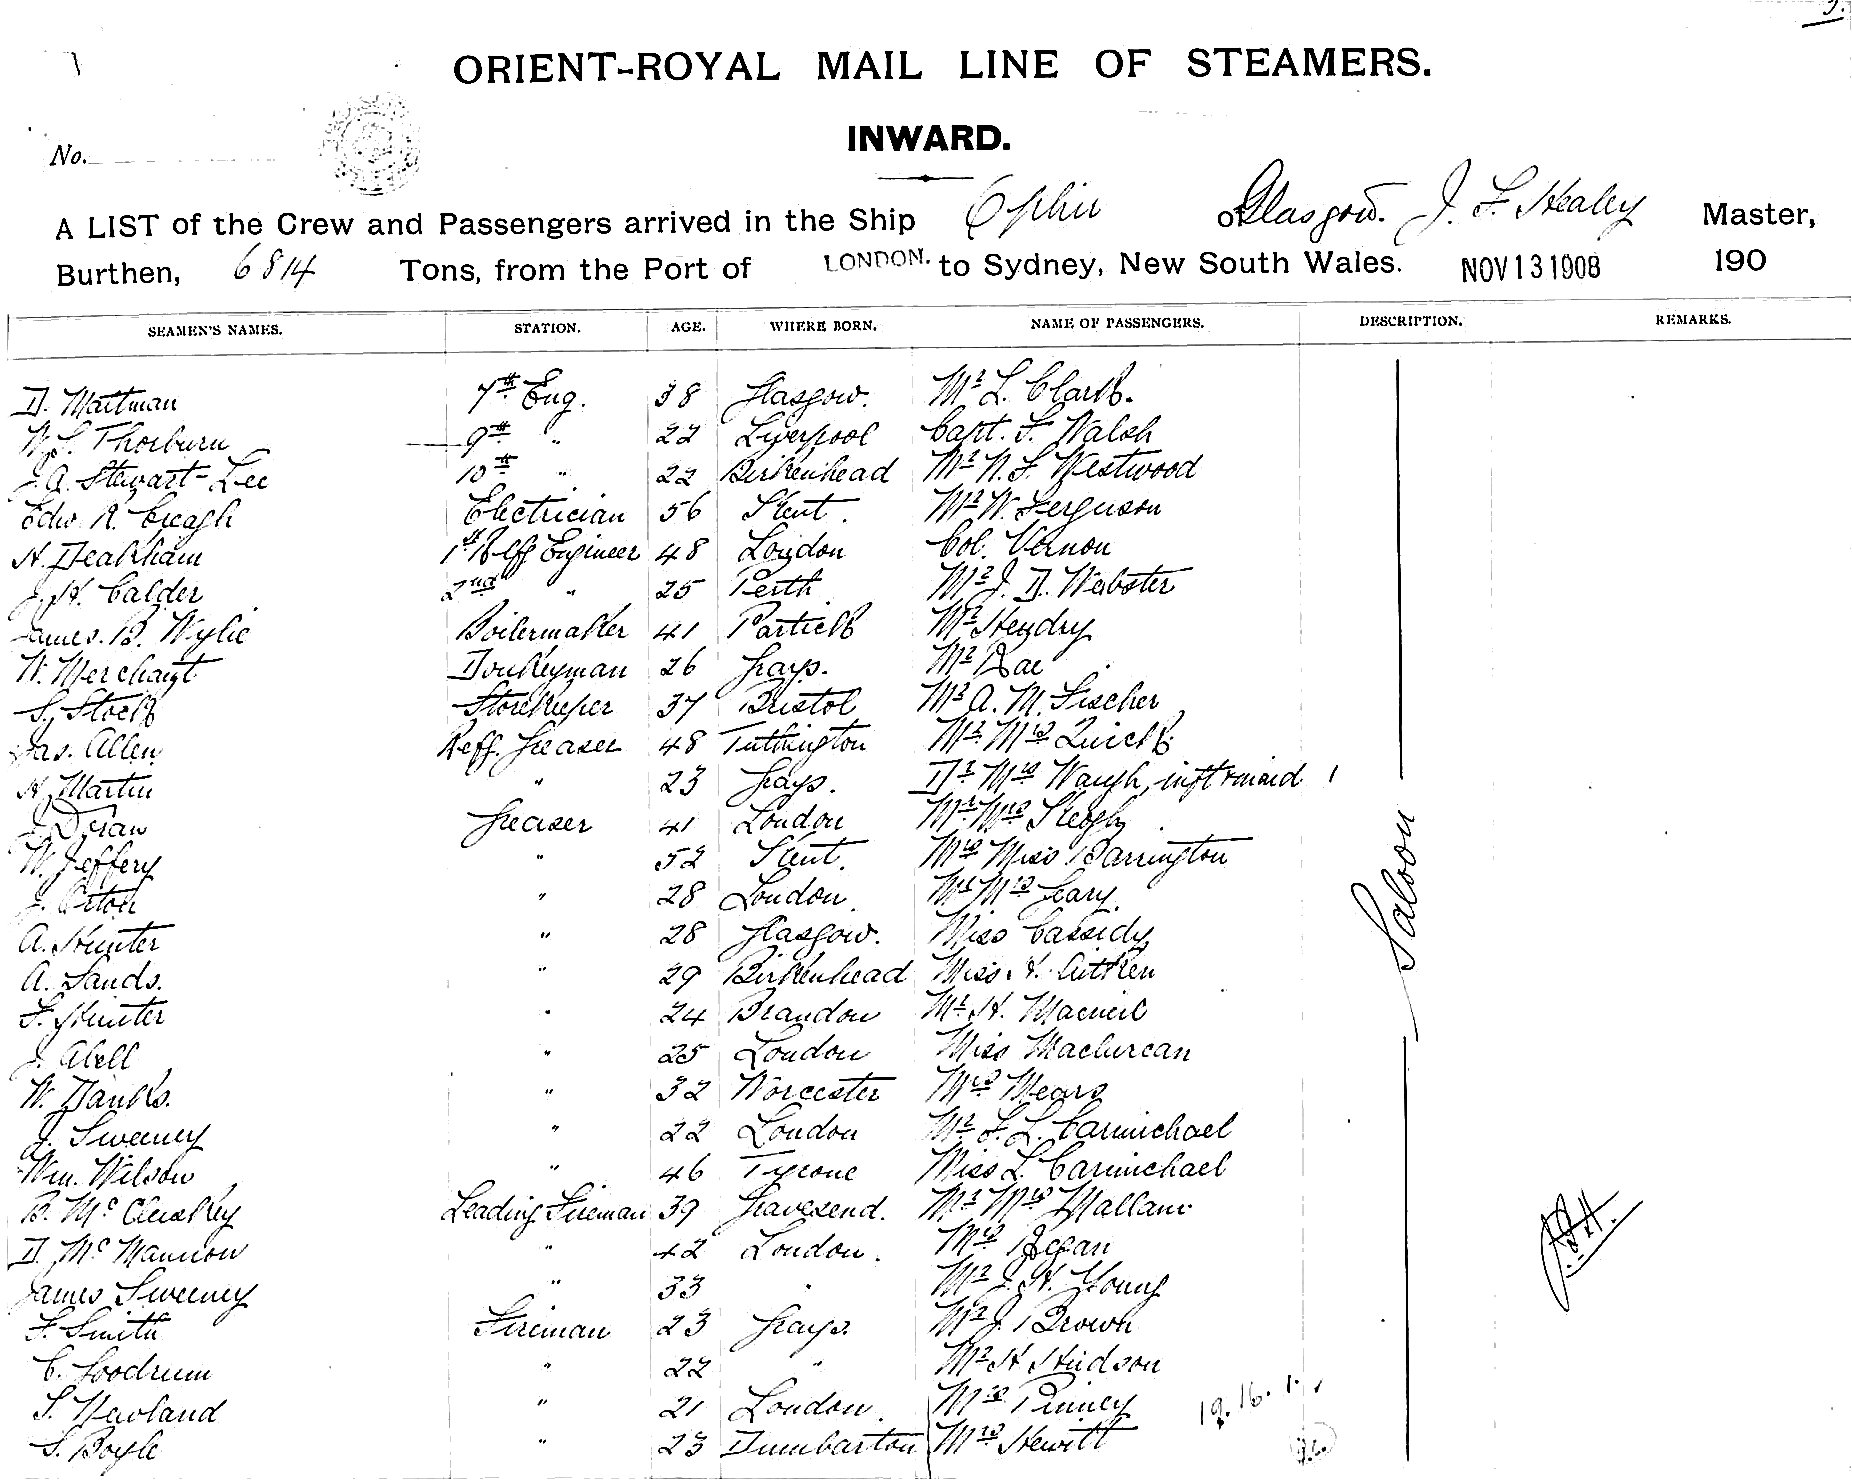 ORIENT-ROYAL MAIL LINE OF STEAMERS.
INWARD.
No.
A LIST of the Crew and Passengers arrived in the Ship Ophir of Glasgow. J. F. Healey Master,
Burthen, 6814 Tons, from the Port of LONDON. to Sydney, New South Wales. NOV 13 1908 190
SEAMEN'S NAMES. STATION. AGE. WHERE BORN. NAME OF PASSENGERS. DESCRIPTION. REMARKS.
D. Maitman 7th Eng. 38 Glasgow. Mr L. Clark.
W. S. Thorburn 9th " 22 Liverpool Capt. F. Walsh
J. A. Stewart-Lee 10th " 22 Birkenhead Mr N. F. Westwood
Edw. R. Creagh Electrician 56 Kent. Mr W. Ferguson
H. Deakham 1st Reff Engineer 48 London Col. Vernon
J. H. Calder 2nd " 25 Perth Mr J. D. Webster
James. B. Wylie Boilermaker 41 Partick Mr Hendry
W. Merchant Donkeyman 26 Grays. Mr Rae
S. Stock Storekeeper 37 Bristol Mr A. M. Fischer
Jas. Allen Reff. Greaser 48 Mr Mrs Quick
H. Martin " 23 Grays. Dr Mrs Waugh, inft & maid 1
J. Doran Greaser 41 London Mr Mrs
W. Jeffery " 52 Kent. Mrs Miss Barrington
J. Orton " 28 London. Mr Mrs Geary.
A. Hunter " 28 Glasgow. Miss Cassidy
A. Sands. " 29 Birkenhead Miss H. Aitken
F. Hunter " 24 Brandon Mr H. Macneil
J. Abell " 25 London Miss Maclurcan
W. Danks. " 32 Worcester Mrs Mears
J. Sweeney " 22 London Mr F. L. Carmichael
Wm. Wilson " 46 Tyrone Miss L. Carmichael
B. McCluskey Leading Fireman 39 Gravesend. Mr Mrs Mallam
D. McMannon " 42 London. Mrs Regan
James Sweeney " 33 " Mr J. H. Young
F. Smith Fireman 23 Grays. Mr J. Brown
C. Goodrum " 22 " Mr H Hudson
S. Newland " 21 London. Mrs Pinney
S. Boyle " 23 Dumbarton Mrs Hewitt
Saloon
19. 16. 1.